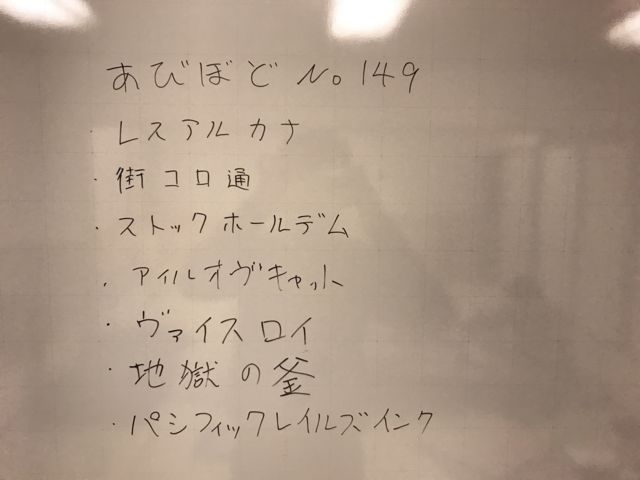 あびぼど No 149
・レスアルカナ
・街コロ通
・ストックホールデム
・アイルオヴキャット
・ヴァイスロイ
・地獄の釜
・パシフィックレイルズインク